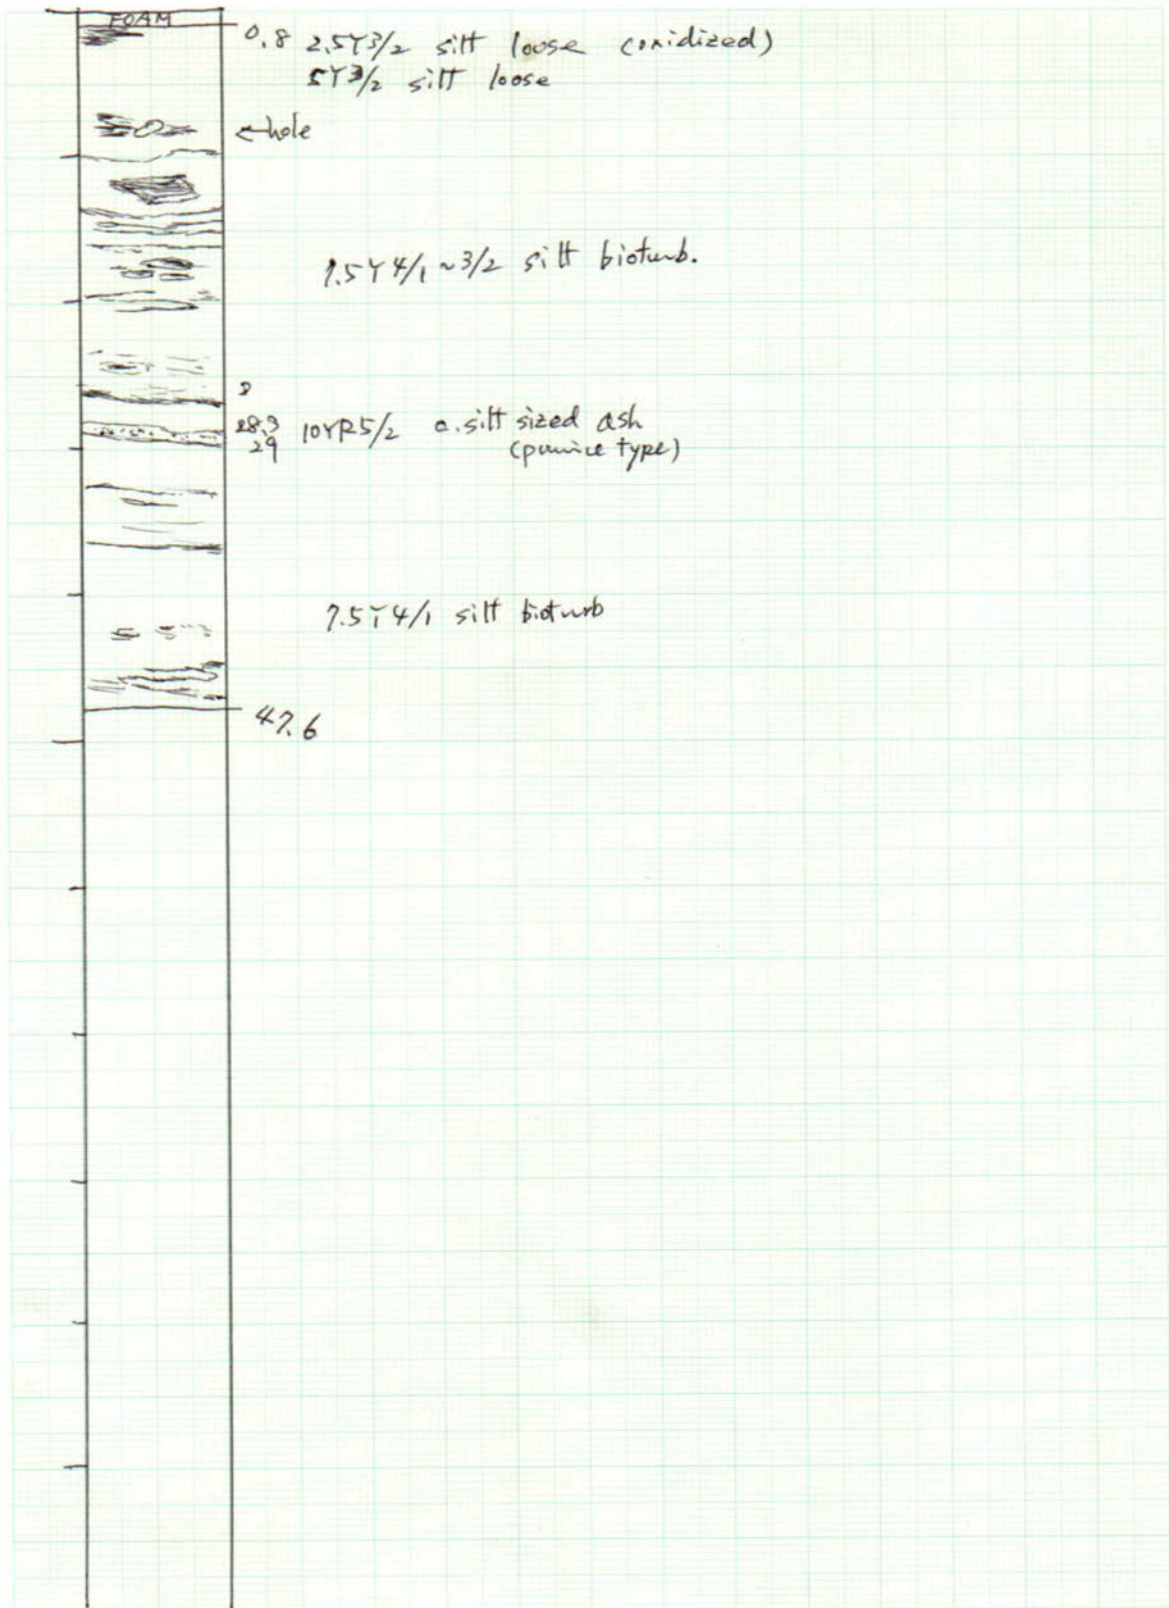 FOAM
0.8 2.5Y3/2 silt loose (oxidized)
5Y3/2 silt loose
←hole
7.5Y4/1~3/2 silt bioturb.
28.3 10YR5/2 c.silt sized ash
29 (pumice type)
7.5Y4/1 silt bioturb
47.6